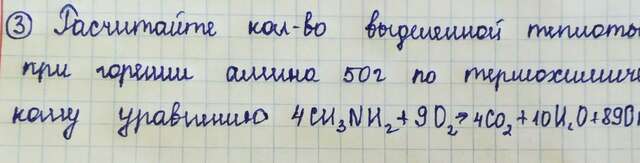 ③ Расчитайте кол-во выделенной теплоты
при горении амина 50г по термохимиче
кому уравнению 4CH₃NH₂+9O₂→4CO₂+10H₂O+890